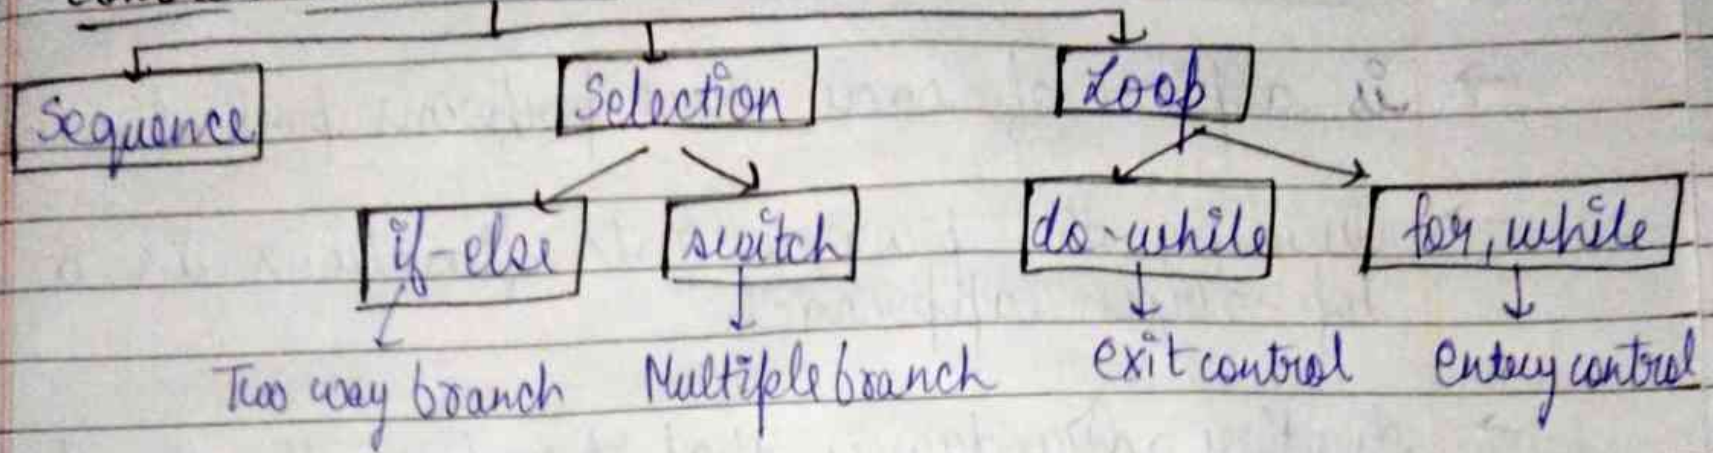 Sequence Selection Loop
if-else switch do-while for, while
Two way branch Multiple branch exit control Entry control